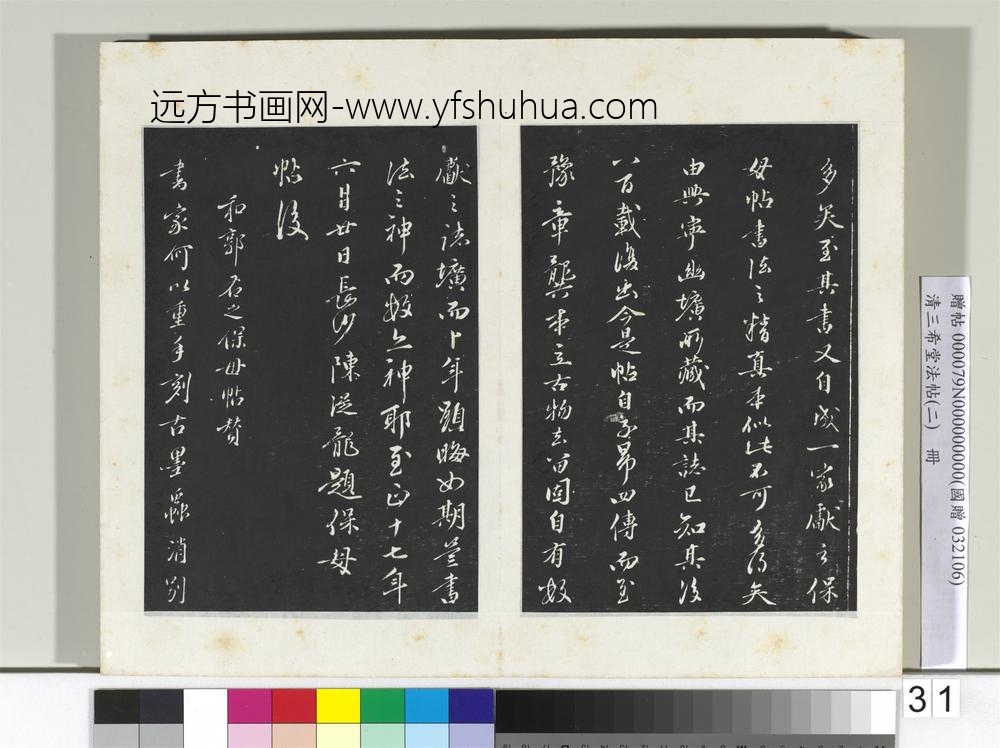 远方书画网-www.yfshuhua.com
多矣至其書又自成一家獻之保
母帖書法之精真本似此不可多得矣
由興寧幽壙所藏而其誌已知其後
八百載復出今是帖自子昂四傳而至
豫章龔本立古物去留固自有數
獻之誌壙而卜年顯晦如期豈書
法之神而數亦神耶至正十七年
六月廿日長沙陳從龍題保母
帖後
和郭右之保母帖贊
書家何以重手刻古墨
消別
贈帖 000079N000000000(國贈 032106)
清三希堂法帖(二) 冊
31